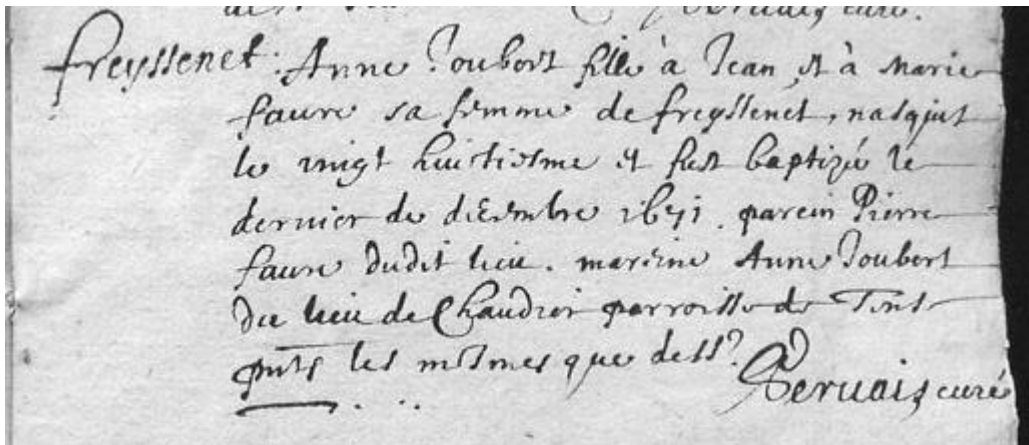 Gervais curé.
freyssenet. Anne Joubert fille à Jean et à Marie
faure sa femme de freyssenet, nasquit
le vingt huictiesme et fust baptizée le
dernier de decembre 1671. parein Pierre
faure dudit lieu. mareine Anne Joubert
du lieu de Chaudier parroisse de
pnts les mesmes que dess?
Gervais curé